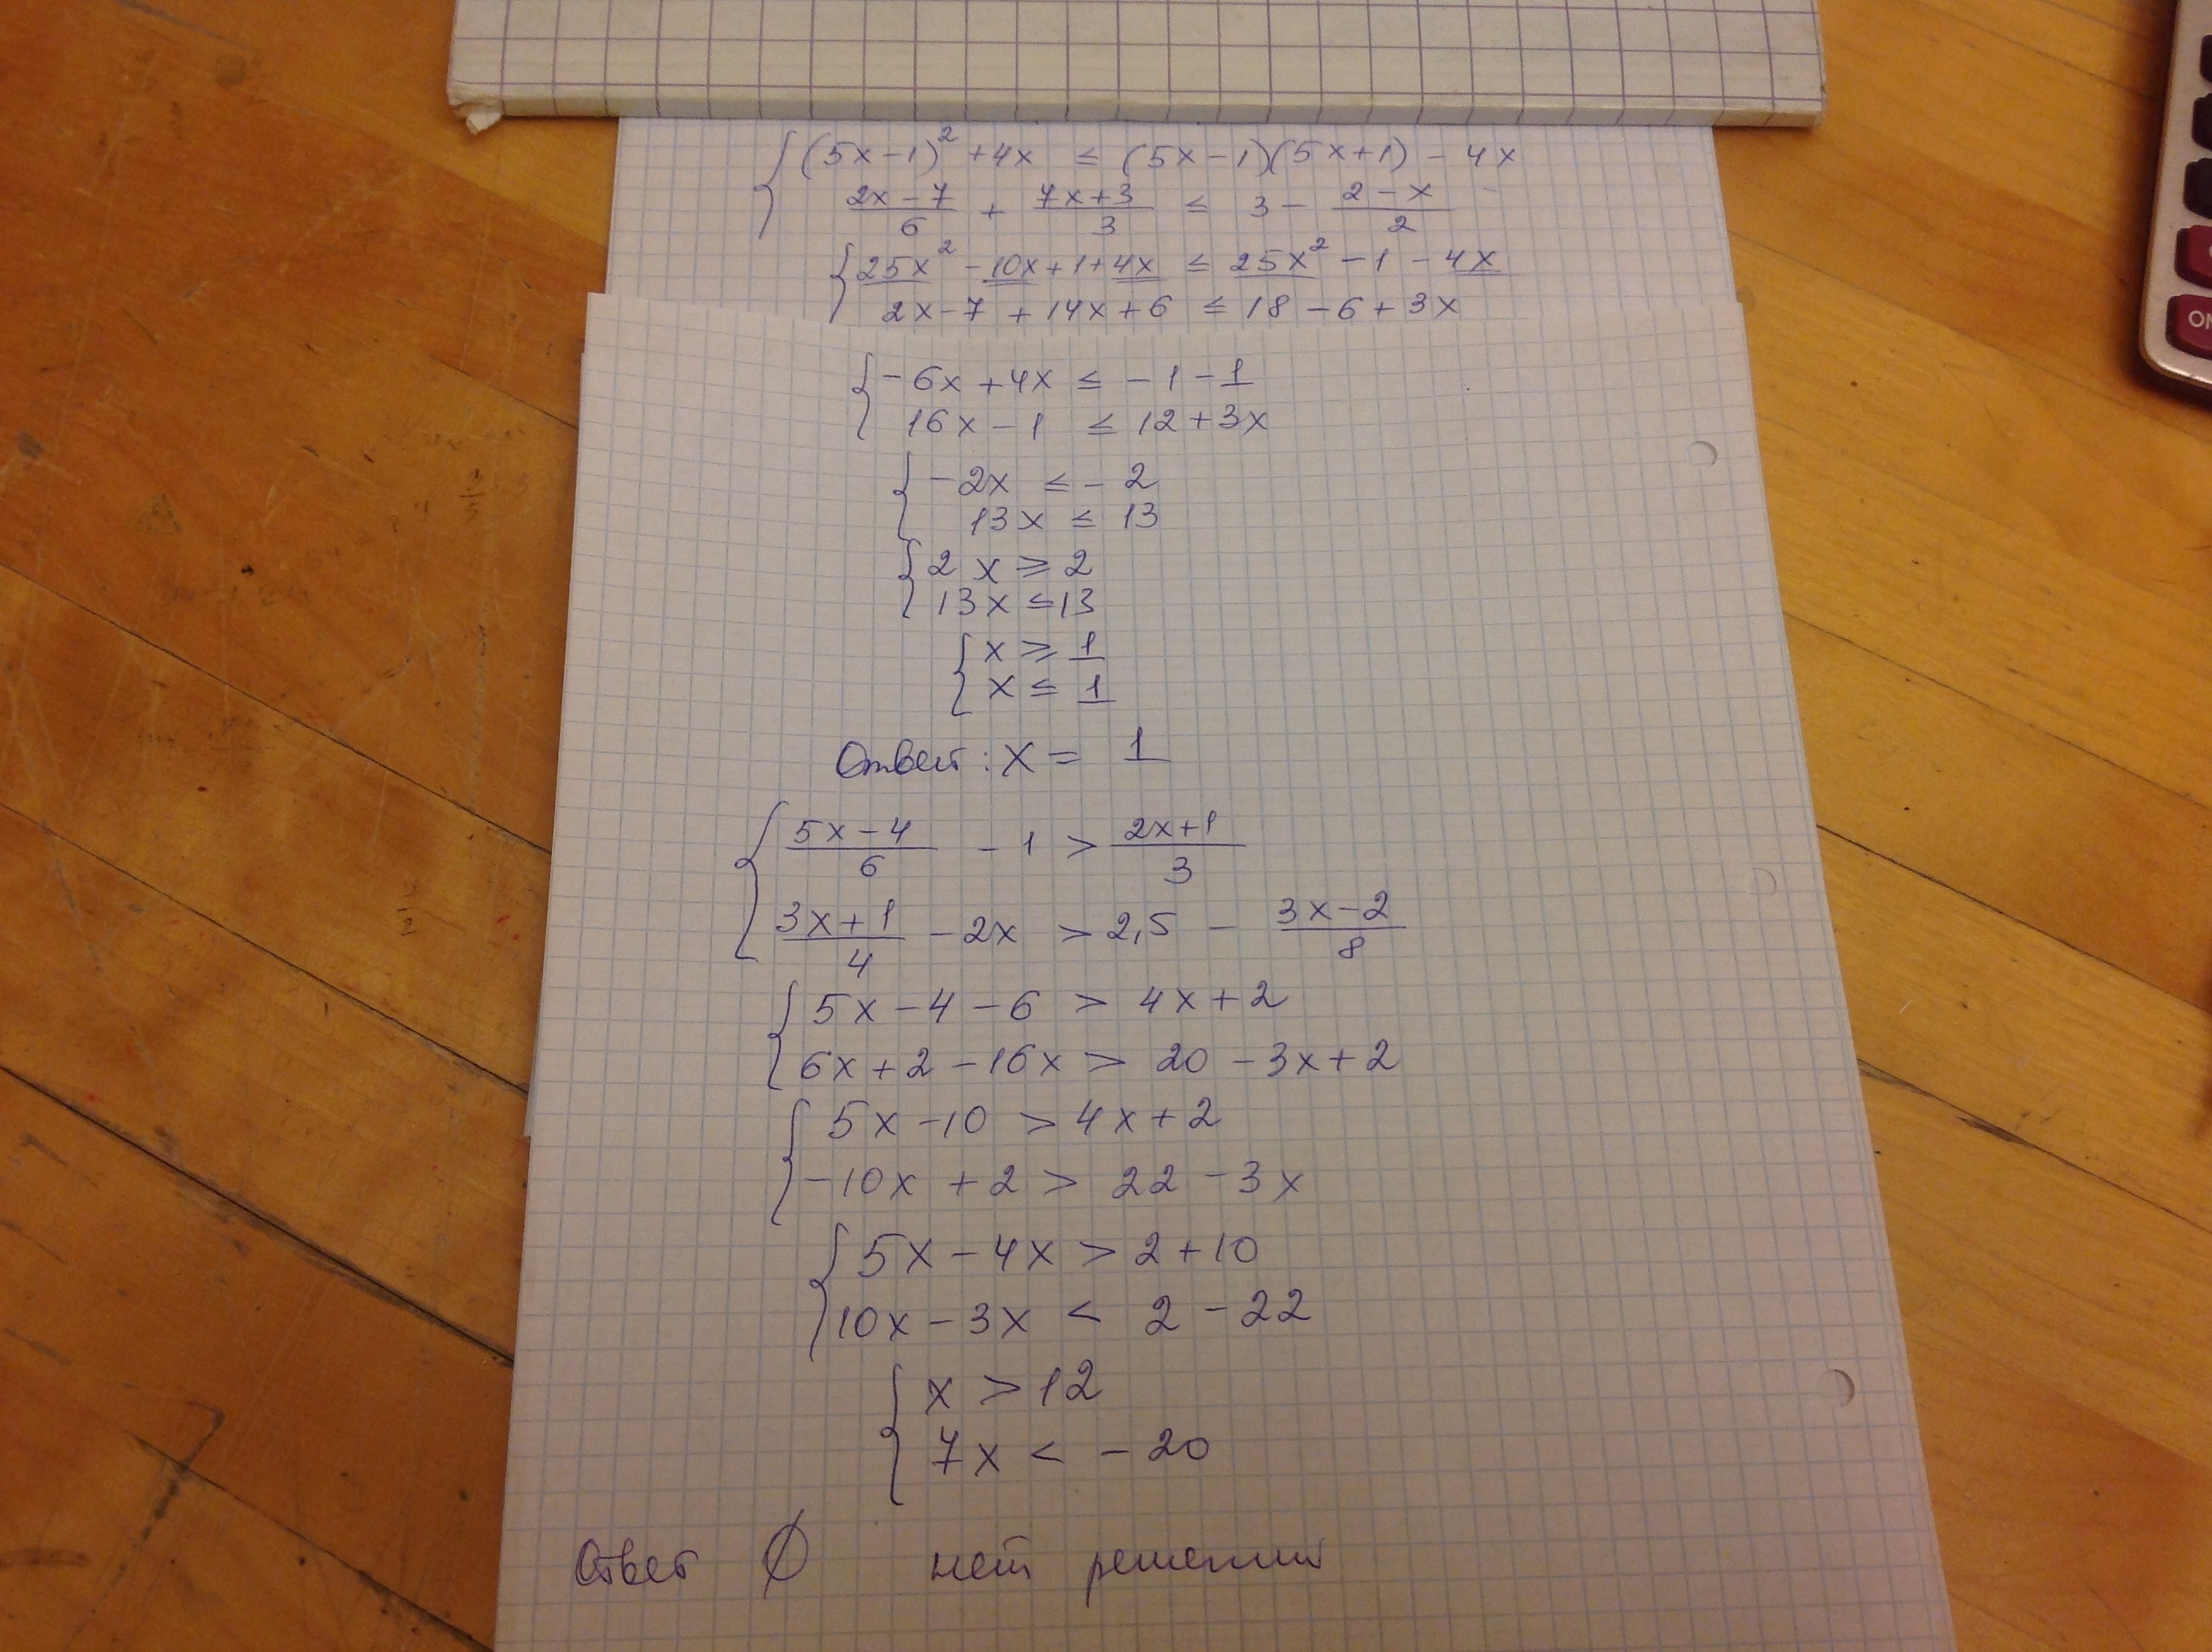 { (5x-1)² + 4x ≤ (5x-1)(5x+1) - 4x
(2x-7)/6 + (7x+3)/3 ≤ 3 - (2-x)/2
{ 25x² - 10x + 1 + 4x ≤ 25x² - 1 - 4x
2x - 7 + 14x + 6 ≤ 18 - 6 + 3x
{ -6x + 4x ≤ -1 - 1
16x - 1 ≤ 12 + 3x
{ -2x ≤ -2
13x ≤ 13
{ 2x ≥ 2
13x ≤ 13
{ x ≥ 1
x ≤ 1
Ответ: x = 1
{ (5x-4)/6 - 1 > (2x+1)/3
(3x+1)/4 - 2x > 2,5 - (3x-2)/8
{ 5x - 4 - 6 > 4x + 2
6x + 2 - 16x > 20 - 3x + 2
{ 5x - 10 > 4x + 2
-10x + 2 > 22 - 3x
{ 5x - 4x > 2 + 10
10x - 3x < 2 - 22
{ x > 12
7x < -20
Ответ ∅ нет решений